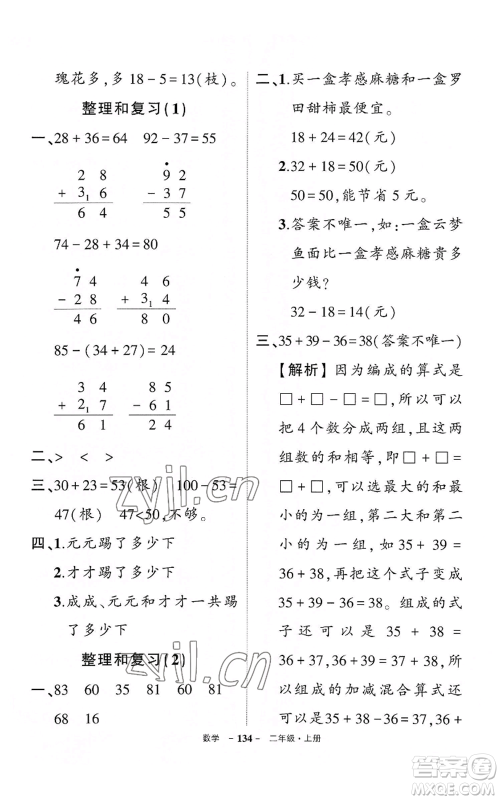 瑰花多,多 18-5=13(枝)。
整理和复习(1)
一、28+36=64 92-37=55
2 8 9 2
+ 3₁6 - 3 7
6 4 5 5
74-28+34=80
7 4 4 6
- 2 8 + 3₁4
4 6 8 0
85-(34+27)=24
3 4 8 5
+ 2₁7 - 6 1
6 1 2 4
二、> < >
三、30+23=53(根) 100-53=
47(根) 47<50,不够。
四、1.元元踢了多少下
2.才才踢了多少下
3.成成、元元和才才一共踢
了多少下
整理和复习(2)
一、83 60 35 81 60 81
68 16
二、1.买一盒孝感麻糖和一盒罗
田甜柿最便宜。
18+24=42(元)
2.32+18=50(元)
50=50,能节省 5 元。
3.答案不唯一,如:一盒云梦
鱼面比一盒孝感麻糖贵多
少钱?
32-18=14(元)
三、35+39-36=38(答案不唯一)
【解析】 因为编成的算式是
□+□-□=□,所以可以
把 4 个数分成两组,且这两
组数的和相等,即□+□=
□+□,可以选最大的和最
小的为一组,第二大和第二
小的为一组,如 35+39=
36+38,再把这个式子变成
35+39-36=38。组成的式
子还可以是 35+38=
36+37,35+37=36+36,
组成的加减混合算式还可
以是 35+38-36=37,
数学 -134- 二年级·上册
zyjl.cn
zyjl.cn